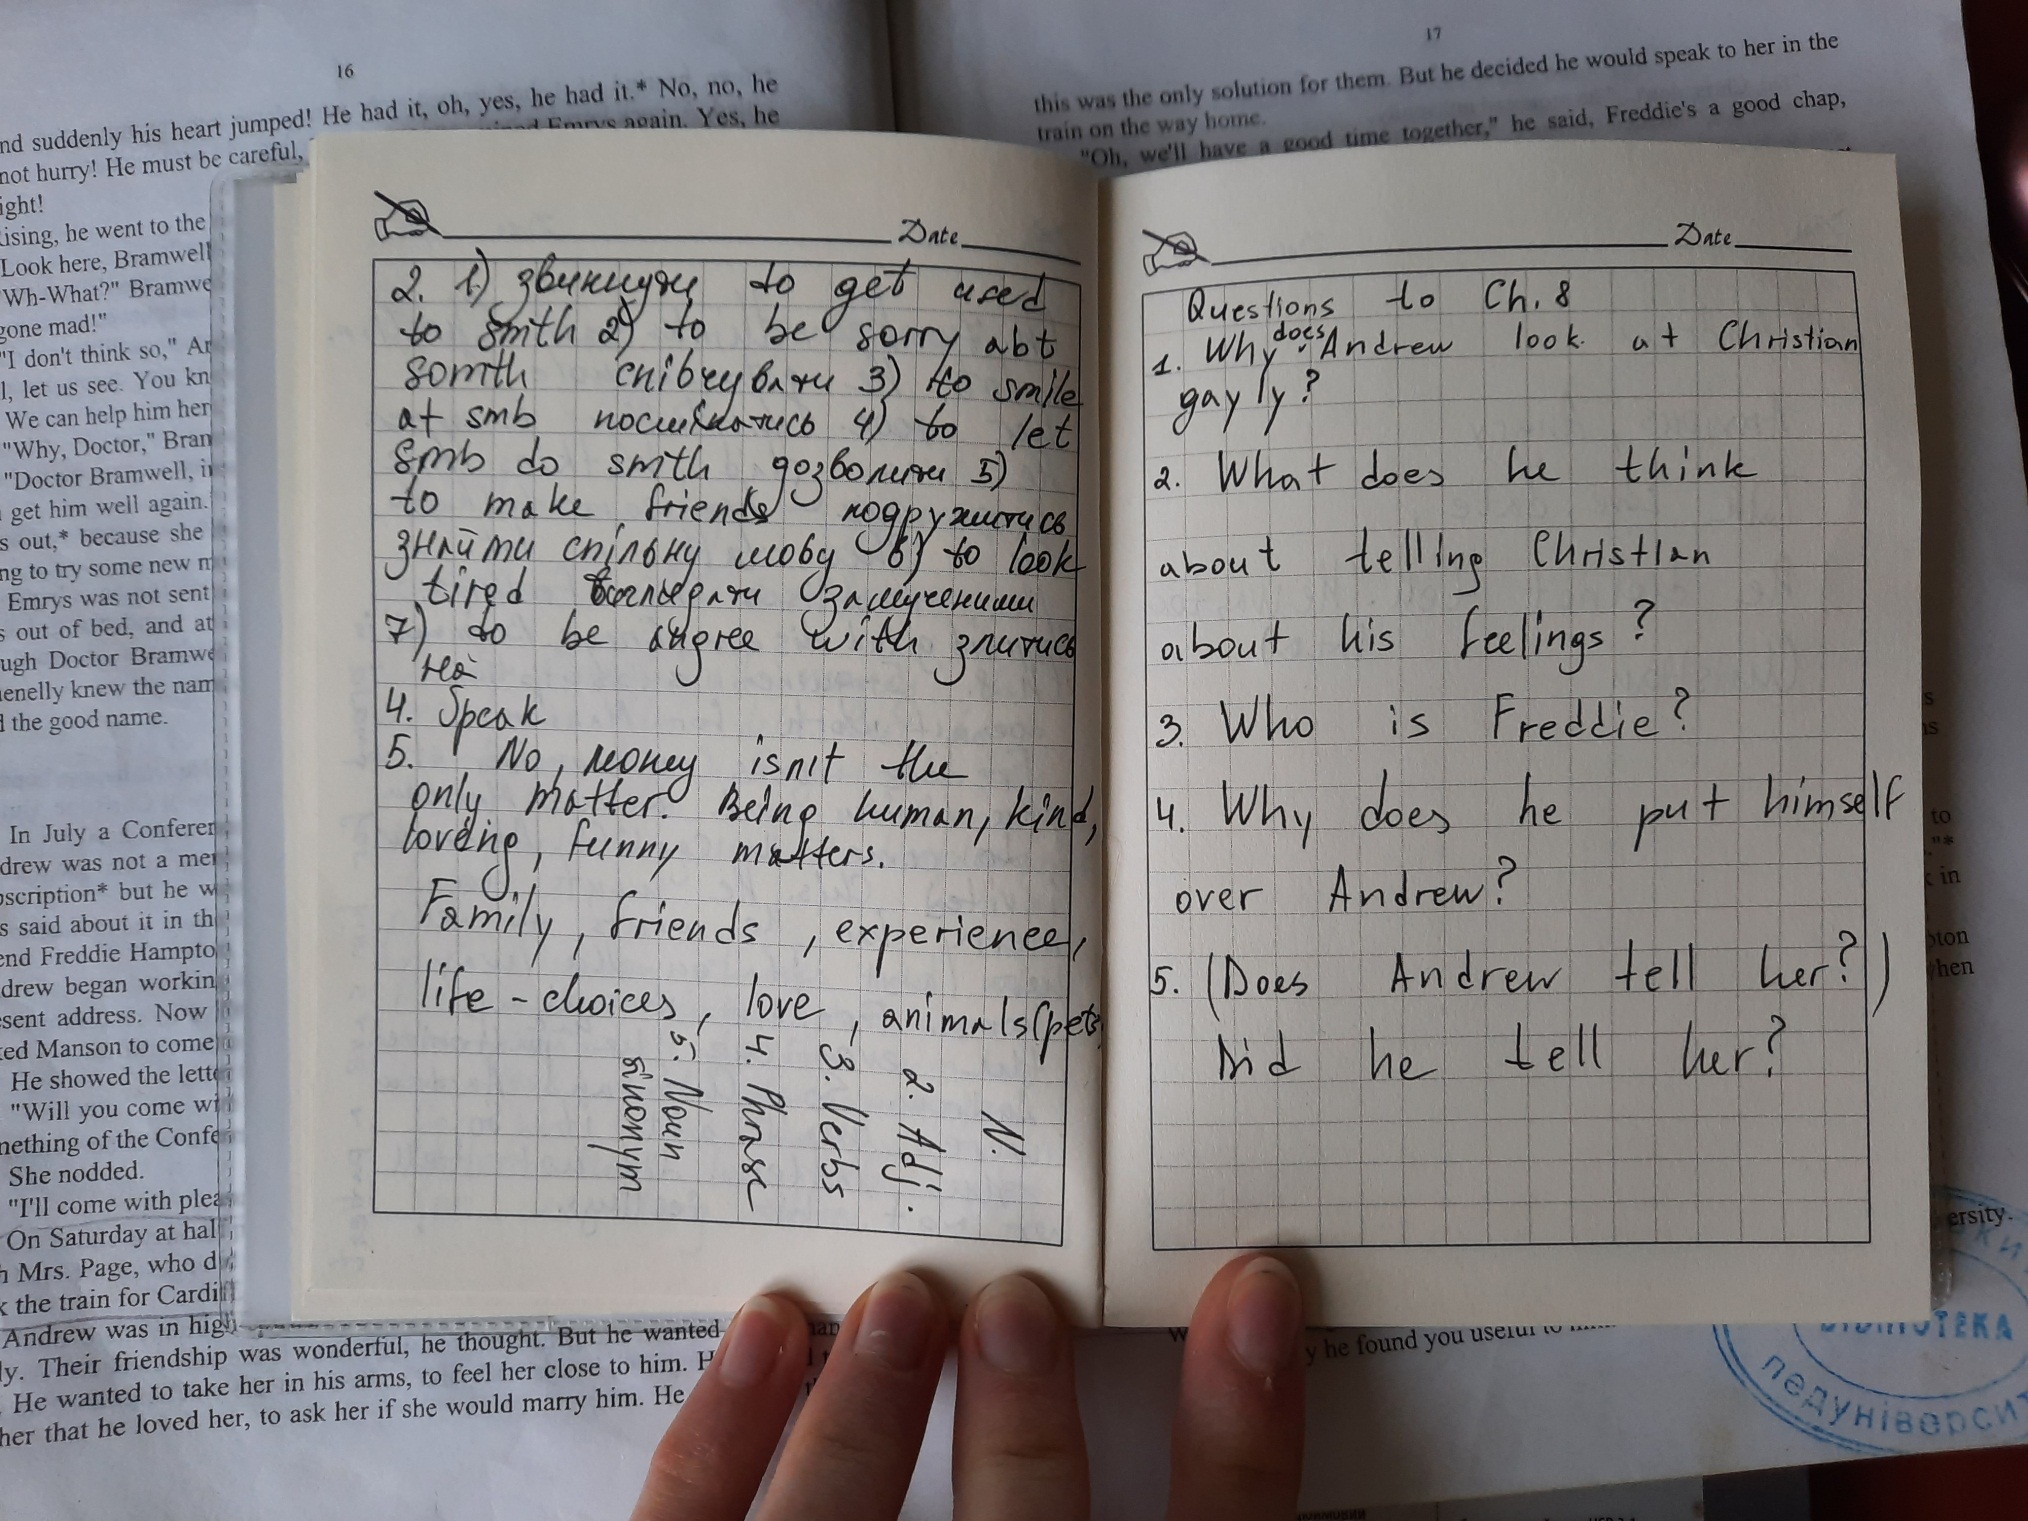 16
nd suddenly his heart jumped! He had it, oh, yes, he had it.* No, no, he
Emrys again. Yes, he
not hurry! He must be careful,
ight!
ising, he went to the
Look here, Bramwell
"Wh-What?" Bramwe
gone mad!"
"I don't think so," Ar
l, let us see. You kn
We can help him her
"Why, Doctor," Bran
"Doctor Bramwell, i
get him well again.
s out,* because she
ng to try some new m
Emrys was not sent
s out of bed, and at
ugh Doctor Bramwe
enelly knew the nam
d the good name.
In July a Conferer
drew was not a mer
oscription* but he w
s said about it in th
end Freddie Hampto
drew began workin
esent address. Now
ted Manson to come
He showed the lette
"Will you come wi
nething of the Confe
She nodded.
"I'll come with plea
On Saturday at hal
h Mrs. Page, who d
k the train for Cardif
Andrew was in high
ly. Their friendship was wonderful, he thought. But he wanted
He wanted to take her in his arms, to feel her close to him. H
her that he loved her, to ask her if she would marry him. He
Date
2. 1) звикнути to get used
to smth 2) to be sorry abt
somth співчувати 3) to smile
at smb посміхатись 4) to let
smb do smth дозволити 5)
to make friends подружитись
знайти спільну мову 6) to look
tired виглядати замученими
7) to be angree with злитись
на
4. Speak
5. No, money isn't the
only matter. Being human, kind,
loveing, funny matters.
Family, friends, experience,
life-choices, love, animals(pets
N.
2. Adj.
3. Verbs
4. Phrase
5. Noun
sinonym
17
this was the only solution for them. But he decided he would speak to her in the
train on the way home.
"Oh, we'll have a good time together," he said, Freddie's a good chap,
Date
Questions to Ch. 8
1. Why does Andrew look at Christian
gayly?
2. What does he think
about telling Christian
about his feelings?
3. Who is Freddie?
4. Why does he put himself
over Andrew?
5. (Does Andrew tell her?)
Did he tell her?
to
in
pton
hen
ersity.
y he found you useful to
БІБЛІОТЕКА
педуніверсит